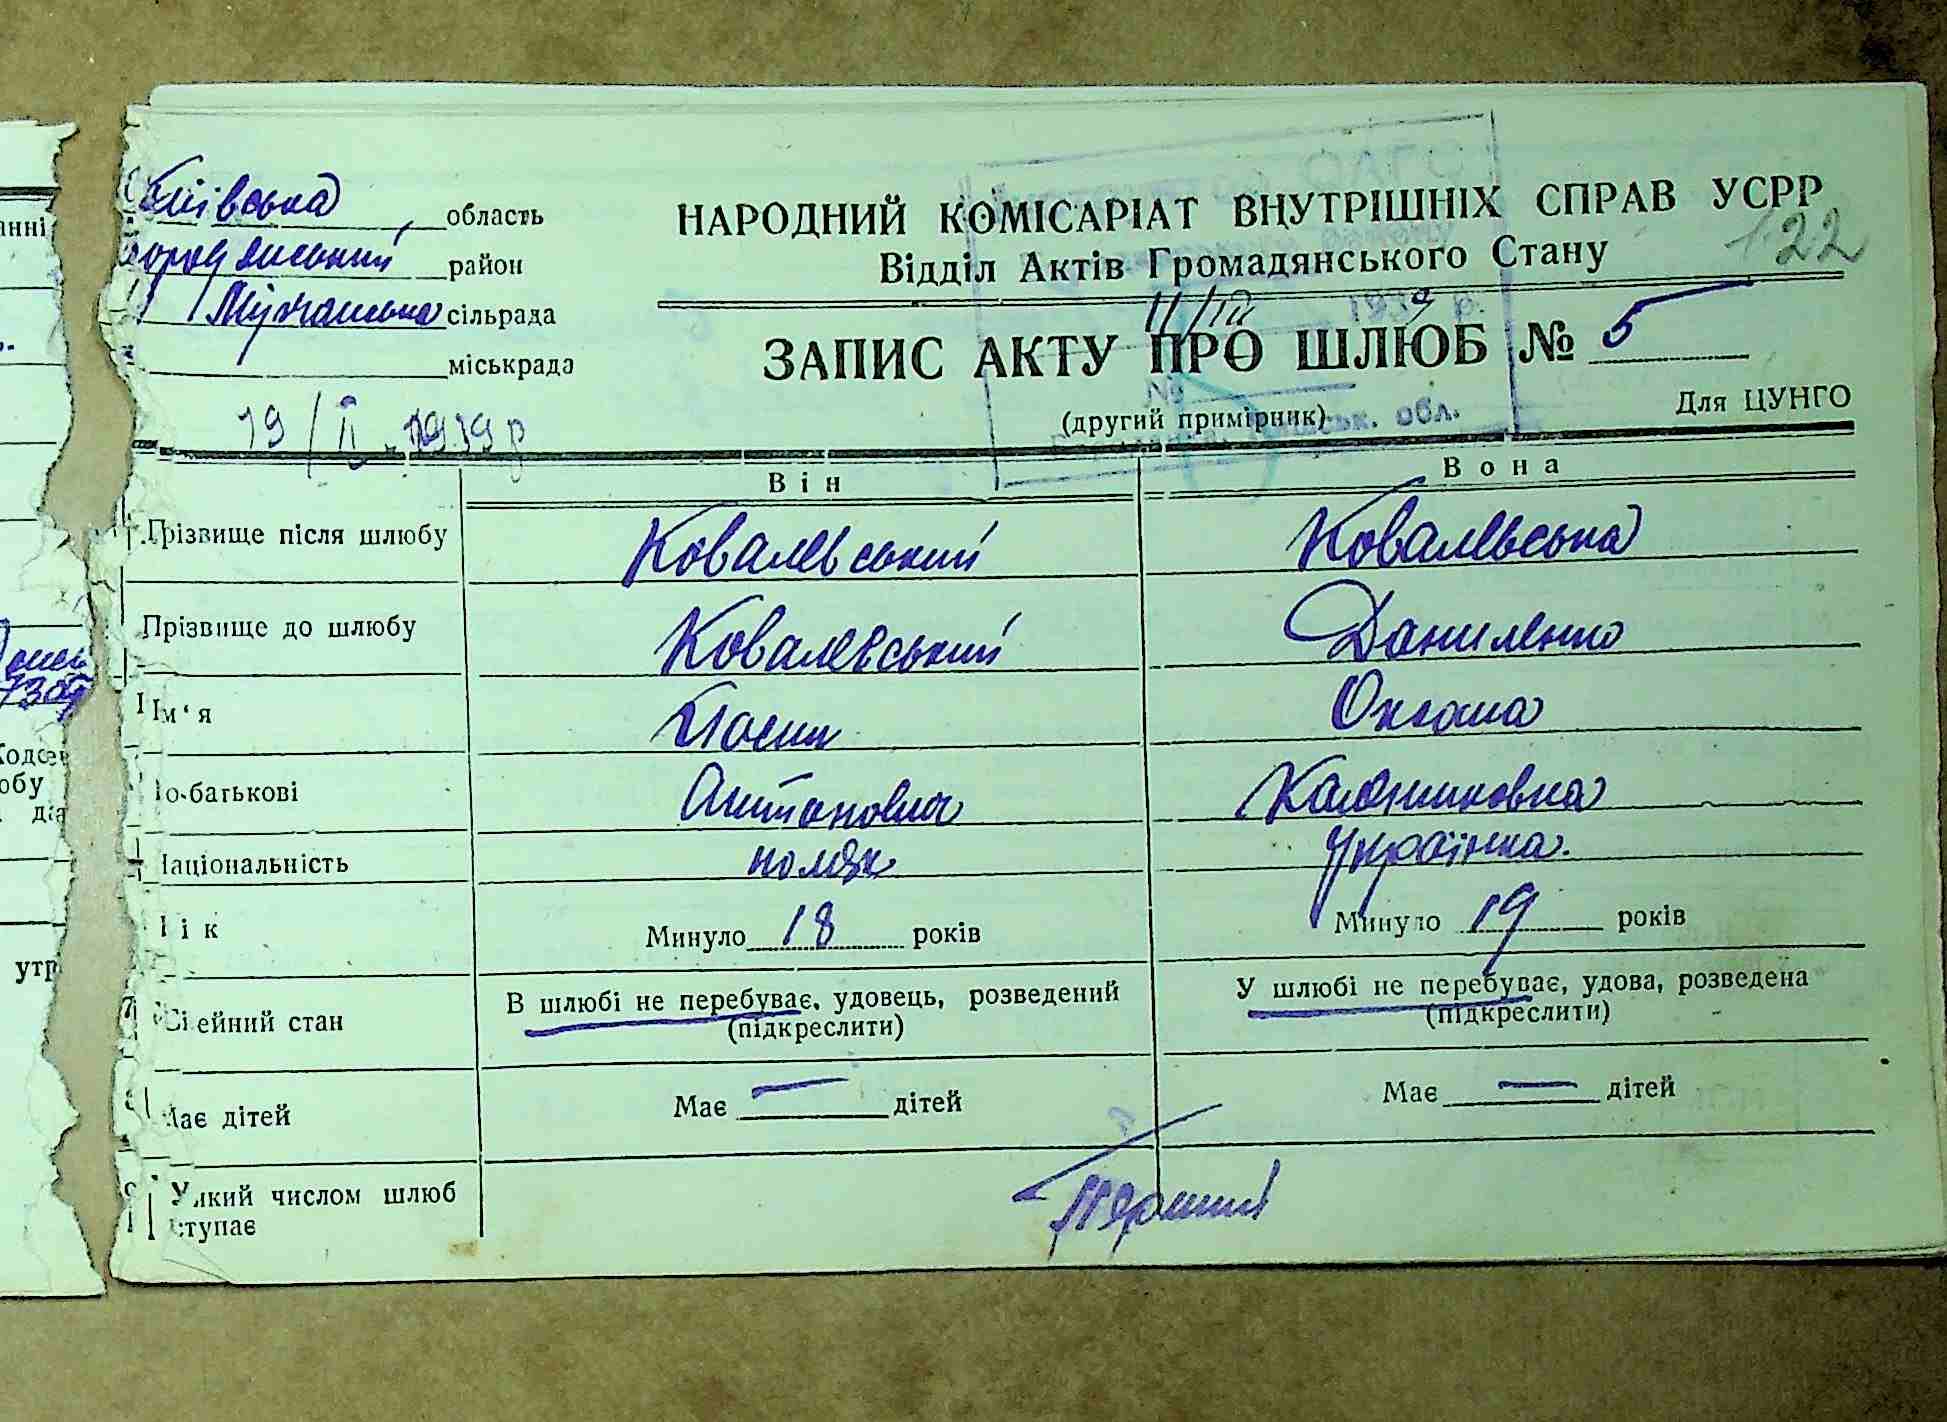 Київська область
Бородянський район
сільрада
міськрада
19/II. 1939 р
НАРОДНИЙ КОМІСАРІАТ ВНУТРІШНІХ СПРАВ УСРР
122
Відділ Актів Громадянського Стану
ЗАПИС АКТУ ПРО ШЛЮБ № 5
(другий примірник)
Для ЦУНГО
11/III 1939 р.
обл.
Він Вона
Прізвище після шлюбу Ковалевський Ковалевська
Прізвище до шлюбу Ковалевський Даниленко
Ім'я Йосип Оксана
По-батькові Антонович
Національність поляк Українка.
Вік Минуло 18 років Минуло 19 років
Сімейний стан В шлюбі не перебуває, удовець, розведений (підкреслити) У шлюбі не перебуває, удова, розведена (підкреслити)
Має дітей Має — дітей Має — дітей
У який числом шлюб вступає Перший